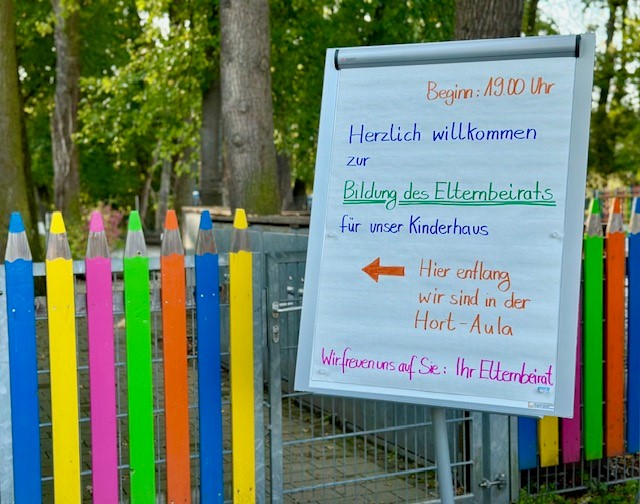 Beginn: 19.00 Uhr
Herzlich willkommen
zur
Bildung des Elternbeirats
für unser Kinderhaus
Hier entlang
wir sind in der
Hort-Aula
Wir freuen uns auf Sie: Ihr Elternbeirat